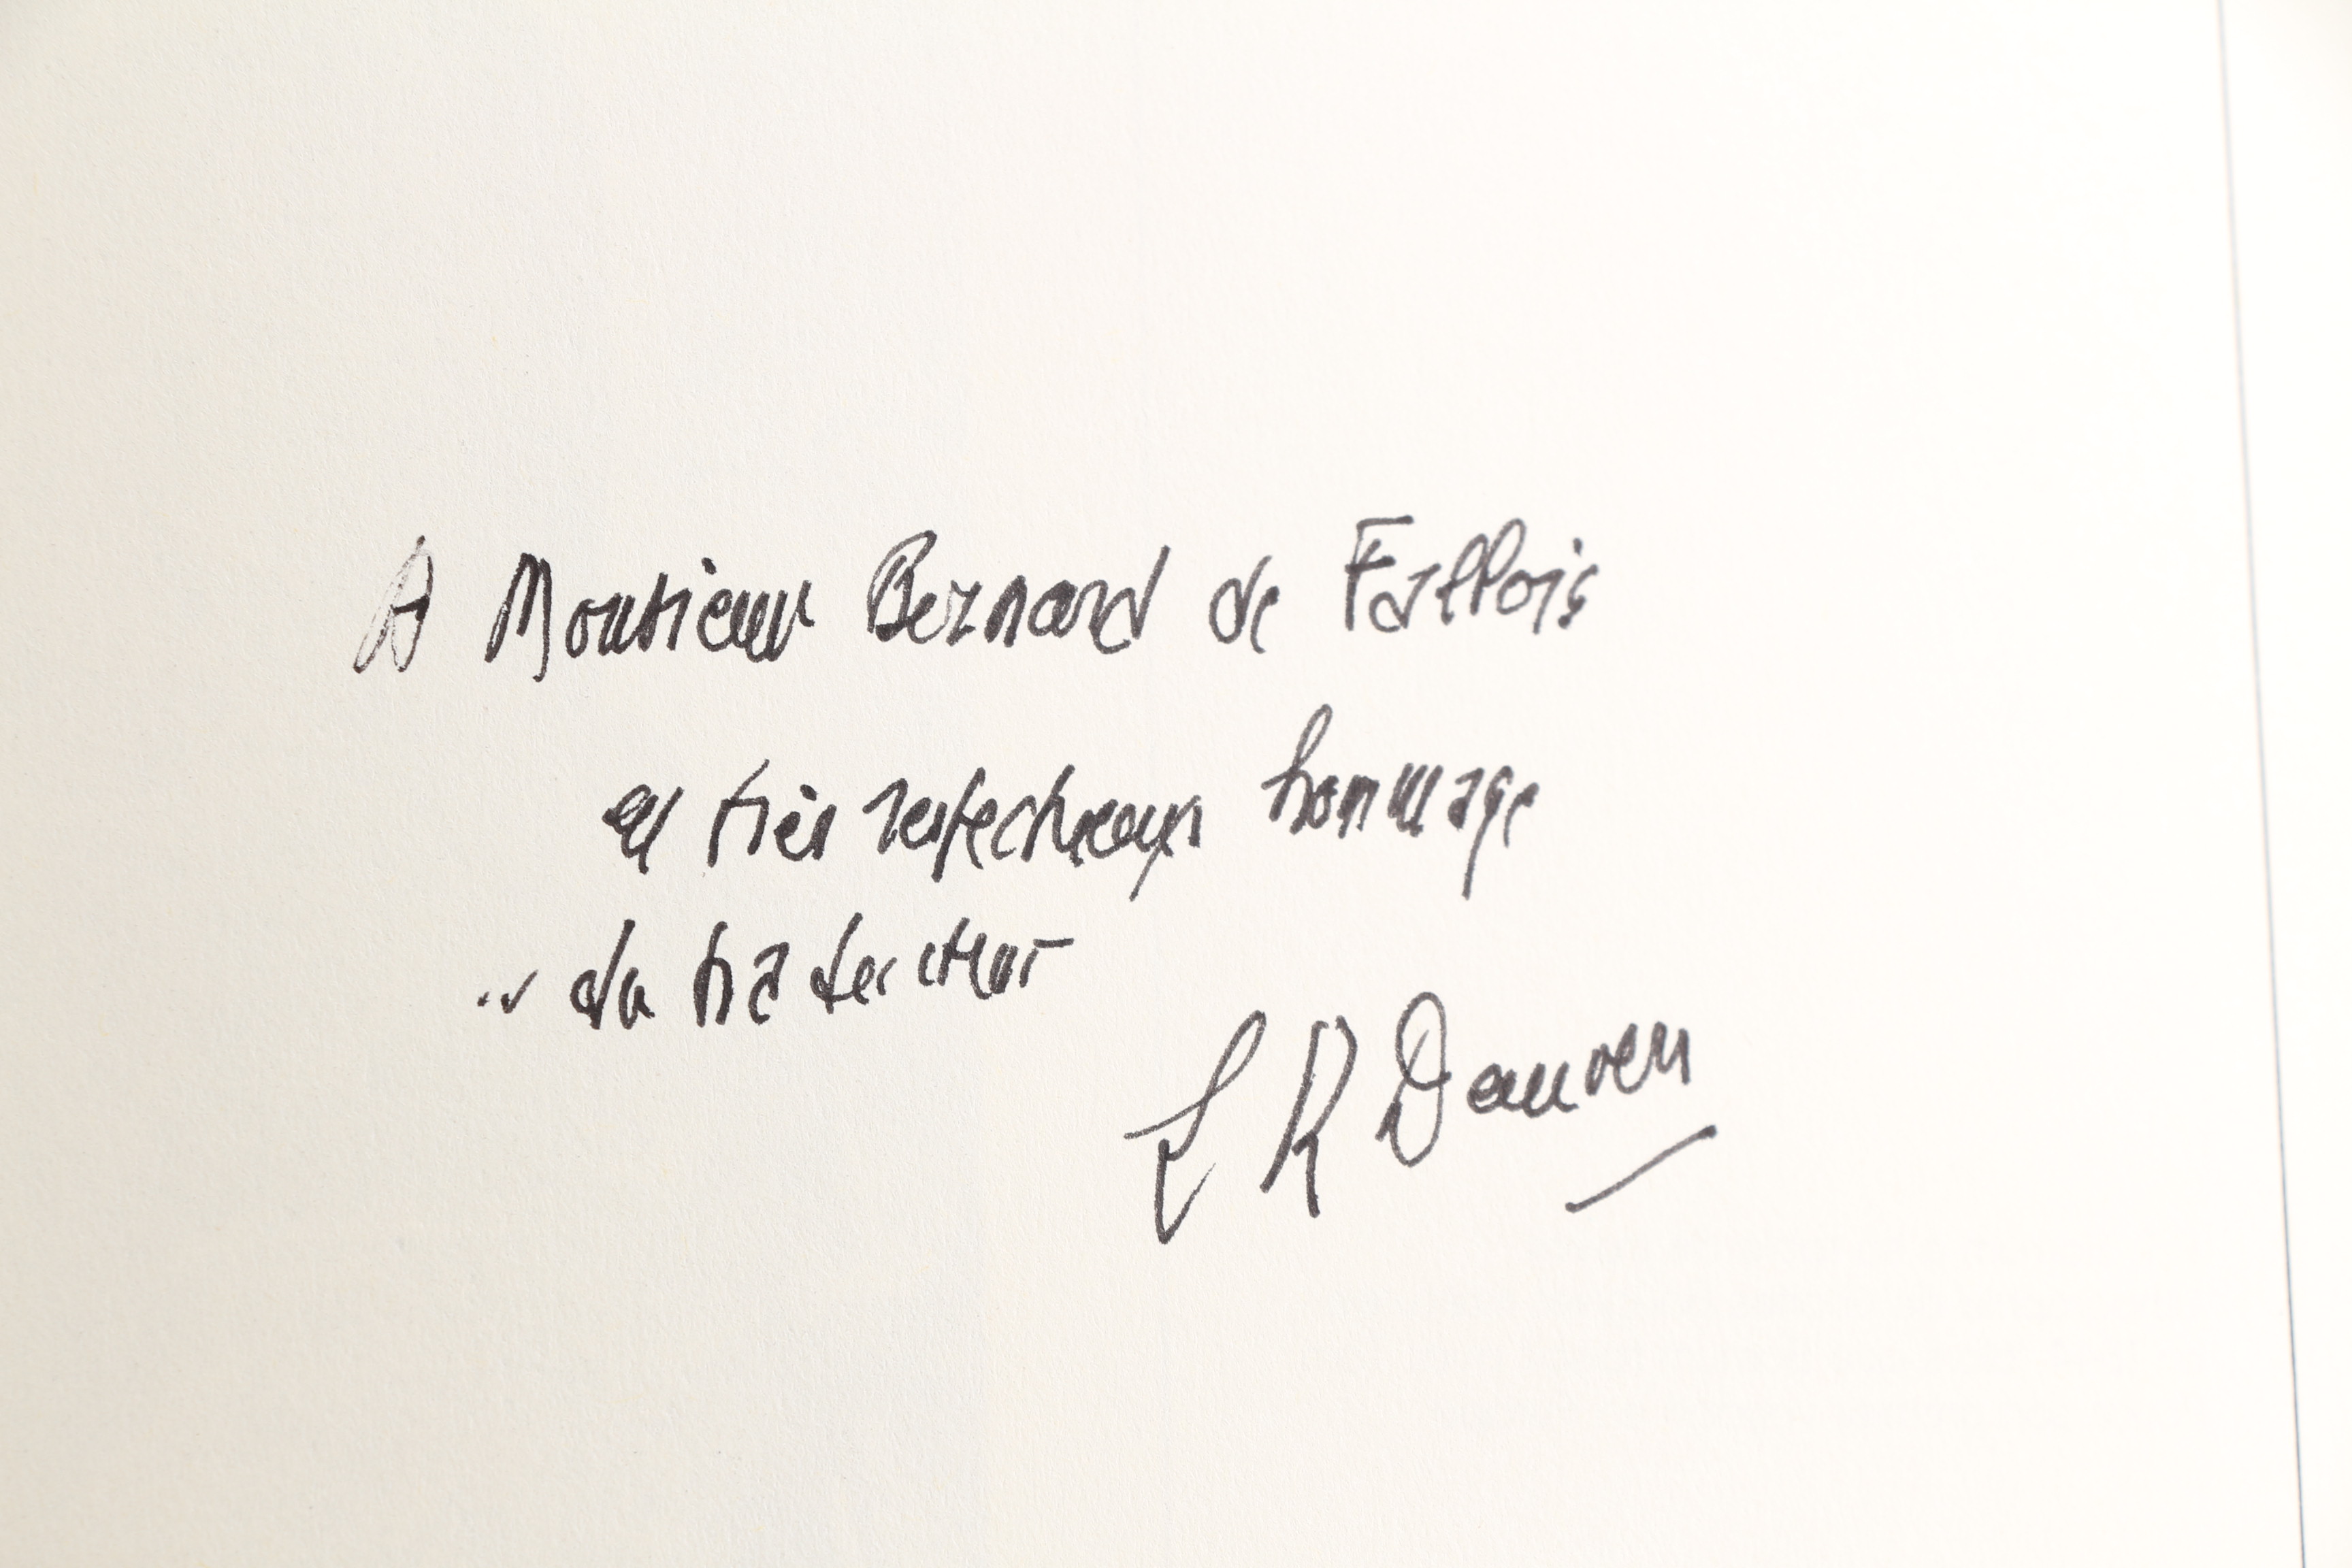 A Monsieur Bernard de Fallois
en très respectueux hommage
.. du traducteur
L R Dauven